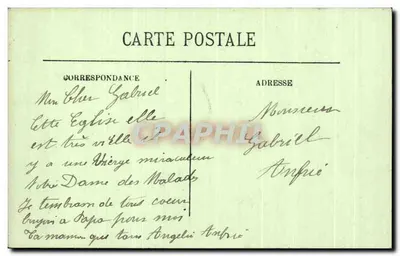 CARTE POSTALE
CORRESPONDANCE
ADRESSE
Mon Cher Gabriel
Cette Eglise elle
est très vielle et
y a une Vierge miraculeuse
Notre Dame des Malades
Je t'embrasse de tout coeur
a Papa pour moi
Ta maman que t'aime Angelie Anfrié
Monsieur
Gabriel
Anfrié
CPARAMA